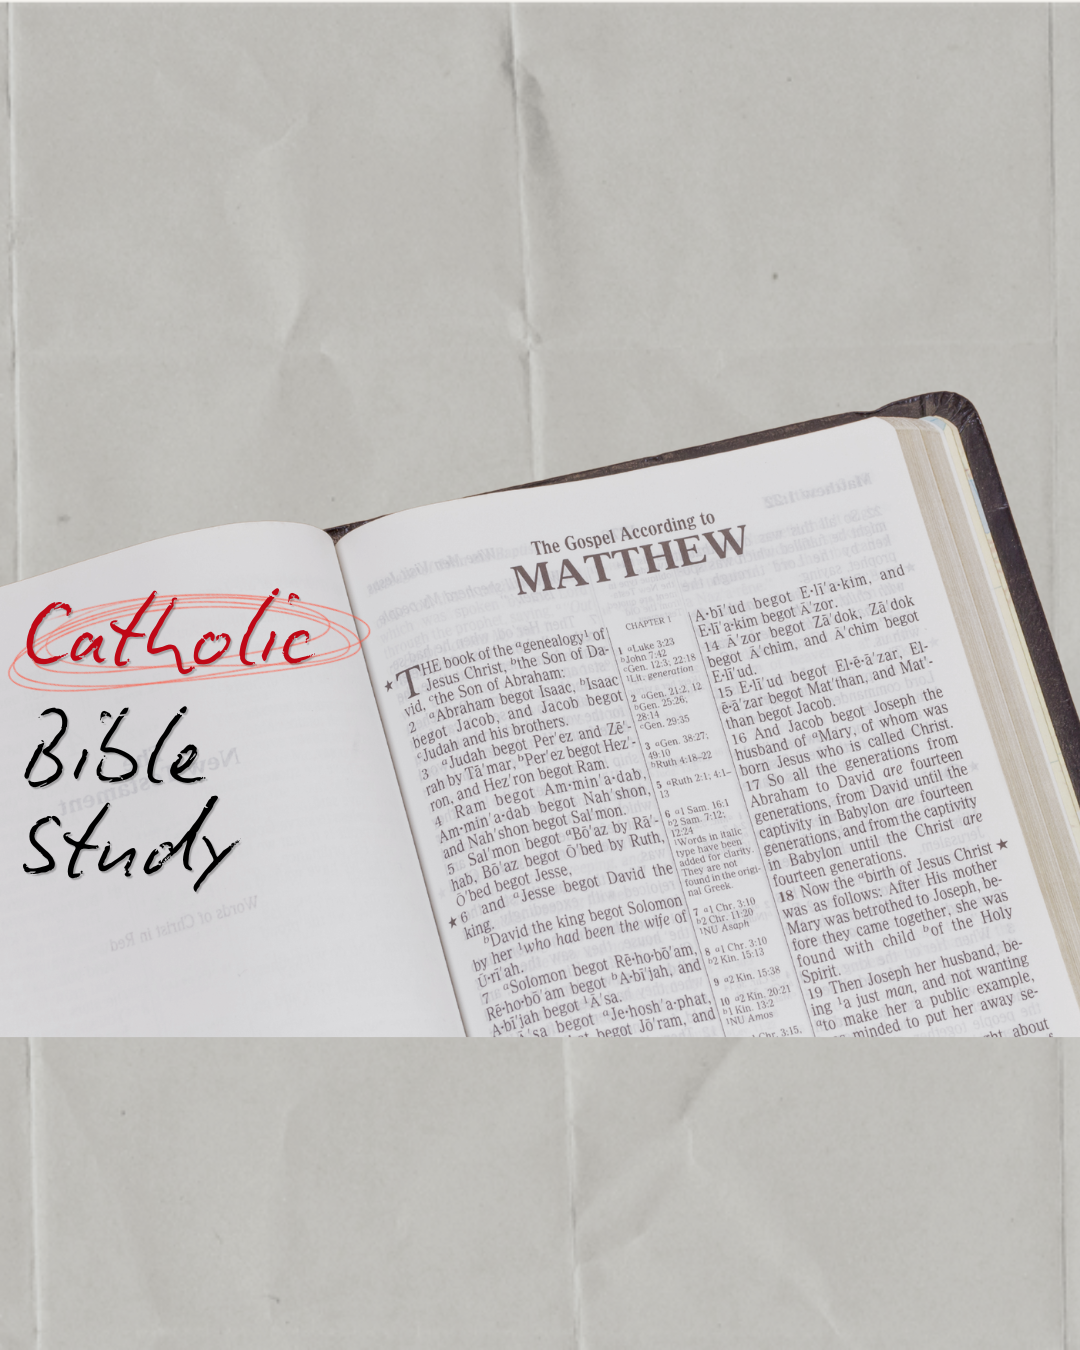 Catholic
Bible
Study
The Gospel According to
MATTHEW
THE book of the ᵃgenealogy¹ of
Jesus Christ, ᵇthe Son of Da-
vid, ᶜthe Son of Abraham:
2 ᵃAbraham begot Isaac, ᵇIsaac
begot Jacob, and Jacob begot
ᶜJudah and his brothers.
3 ᵃJudah begot Per′ez and Zē′-
rah by Tā′mar, ᵇPer′ez begot Hez′-
ron, and Hez′ron begot Ram.
4 Ram begot Am·min′a·dab,
Am·min′a·dab begot Nah′shon,
and Nah′shon begot Sal′mon.
5 Sal′mon begot ᵃBō′az by Rā′-
hab, Bō′az begot Ō′bed by Ruth,
Ō′bed begot Jesse,
6 and ᵃJesse begot David the
king.
ᵇDavid the king begot Solomon
by her ¹who had been the wife of
Ū·rī′ah.
7 ᵃSolomon begot Rē·ho·bō′am,
Rē·ho·bō′am begot ᵇA·bī′jah, and
A·bī′jah begot ¹Ā′sa.
Ā′sa begot ᵃJe·hosh′a·phat,
begot Jō′ram, and
CHAPTER 1
1 ᵃLuke 3:23
ᵇJohn 7:42
ᶜGen. 12:3, 22:18
¹Lit. generation
2 ᵃGen. 21:2, 12
ᵇGen. 25:26,
28:14
ᶜGen. 29:35
3 ᵃGen. 38:27;
49:10
ᵇRuth 4:18–22
5 ᵃRuth 2:1; 4:1–
13
6 ᵃ1 Sam. 16:1
ᵇ2 Sam. 7:12;
12:24
¹Words in italic
type have been
added for clarity.
They are not
found in the origi-
nal Greek.
7 ᵃ1 Chr. 3:10
ᵇ2 Chr. 11:20
¹NU Asaph
8 ᵃ1 Chr. 3:10
ᵇ2 Kin. 15:13
9 ᵃ2 Kin. 15:38
10 ᵃ2 Kin. 20:21
ᵇ1 Kin. 13:2
¹NU Amos
Chr. 3:15,
A·bī′ud begot E·lī′a·kim, and
E·lī′a·kim begot Ā′zor.
14 Ā′zor begot Zā′dok, Zā′dok
begot Ā′chim, and Ā′chim begot
E·lī′ud.
15 E·lī′ud begot El·ē·ā′zar, El-
ē·ā′zar begot Mat′than, and Mat′-
than begot Jacob.
16 And Jacob begot Joseph the
husband of ᵃMary, of whom was
born Jesus who is called Christ.
17 So all the generations from
Abraham to David are fourteen
generations, from David until the
captivity in Babylon are fourteen
generations, and from the captivity
in Babylon until the Christ are
fourteen generations.
18 Now the ᵃbirth of Jesus Christ
was as follows: After His mother
Mary was betrothed to Joseph, be-
fore they came together, she was
found with child ᵇof the Holy
Spirit.
19 Then Joseph her husband, be-
ing ¹a just man, and not wanting
ᵃto make her a public example,
minded to put her away se-
about